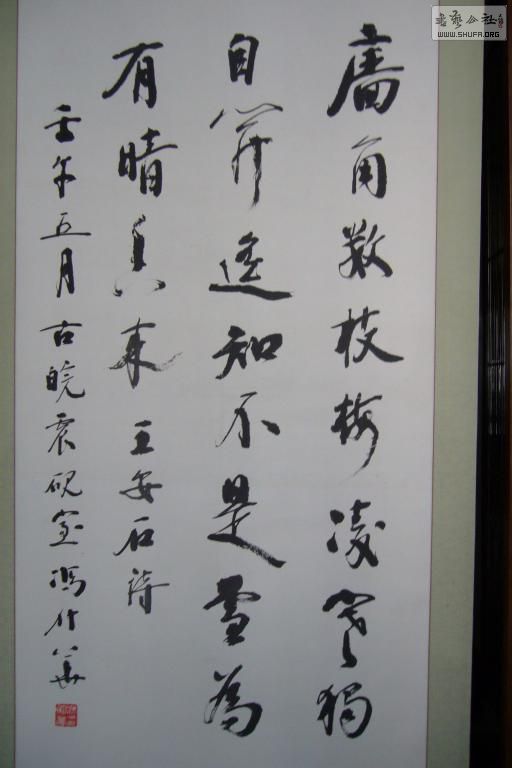 書藝公社
WWW.SHUFA.ORG
廧角数枝梅凌寒獨
自開遙知不是雪為
有暗香来 王安石詩
壬午五月古皖震硯室馮什華